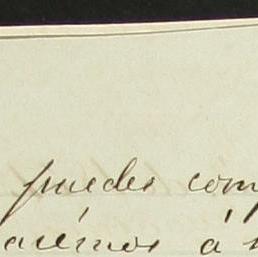 puedes com
acémos á